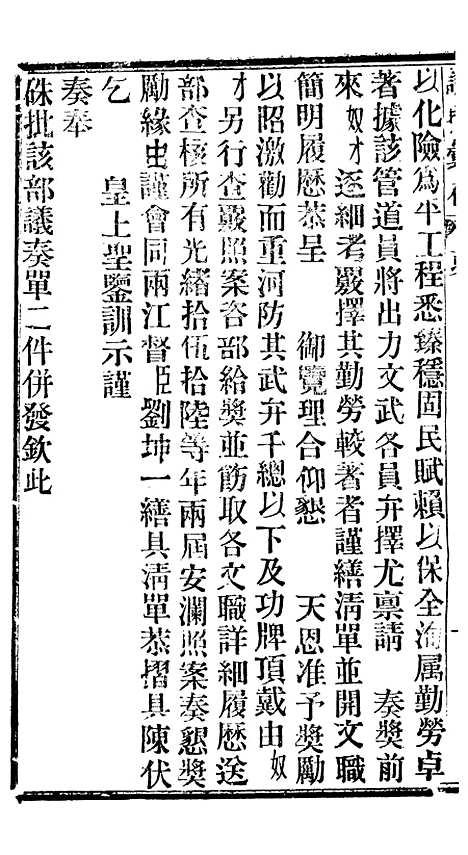 以化險為平工程悉臻穩固民賦賴以保全洵属勤勞卓
著據該管道員將出力文武各員弁擇尤禀請 奏奬前
來奴才逐細考覈擇其勤勞較著者謹繕清單並開文職
簡明履歷恭呈 御覽理合仰懇 天恩准予奬勵
以昭激勸而重河防其武弁千總以下及功牌頂戴由奴
才另行查覈照案咨部給奬並飭取各文職詳細履歷送
部查核所有光緒拾伍拾陸等年兩届安瀾照案奏懇奬
勵緣由謹會同兩江督臣劉坤一繕具清單恭摺具陳伏
乞 皇上聖鑒訓示謹
奏奉
硃批該部議奏單二件併發欽此